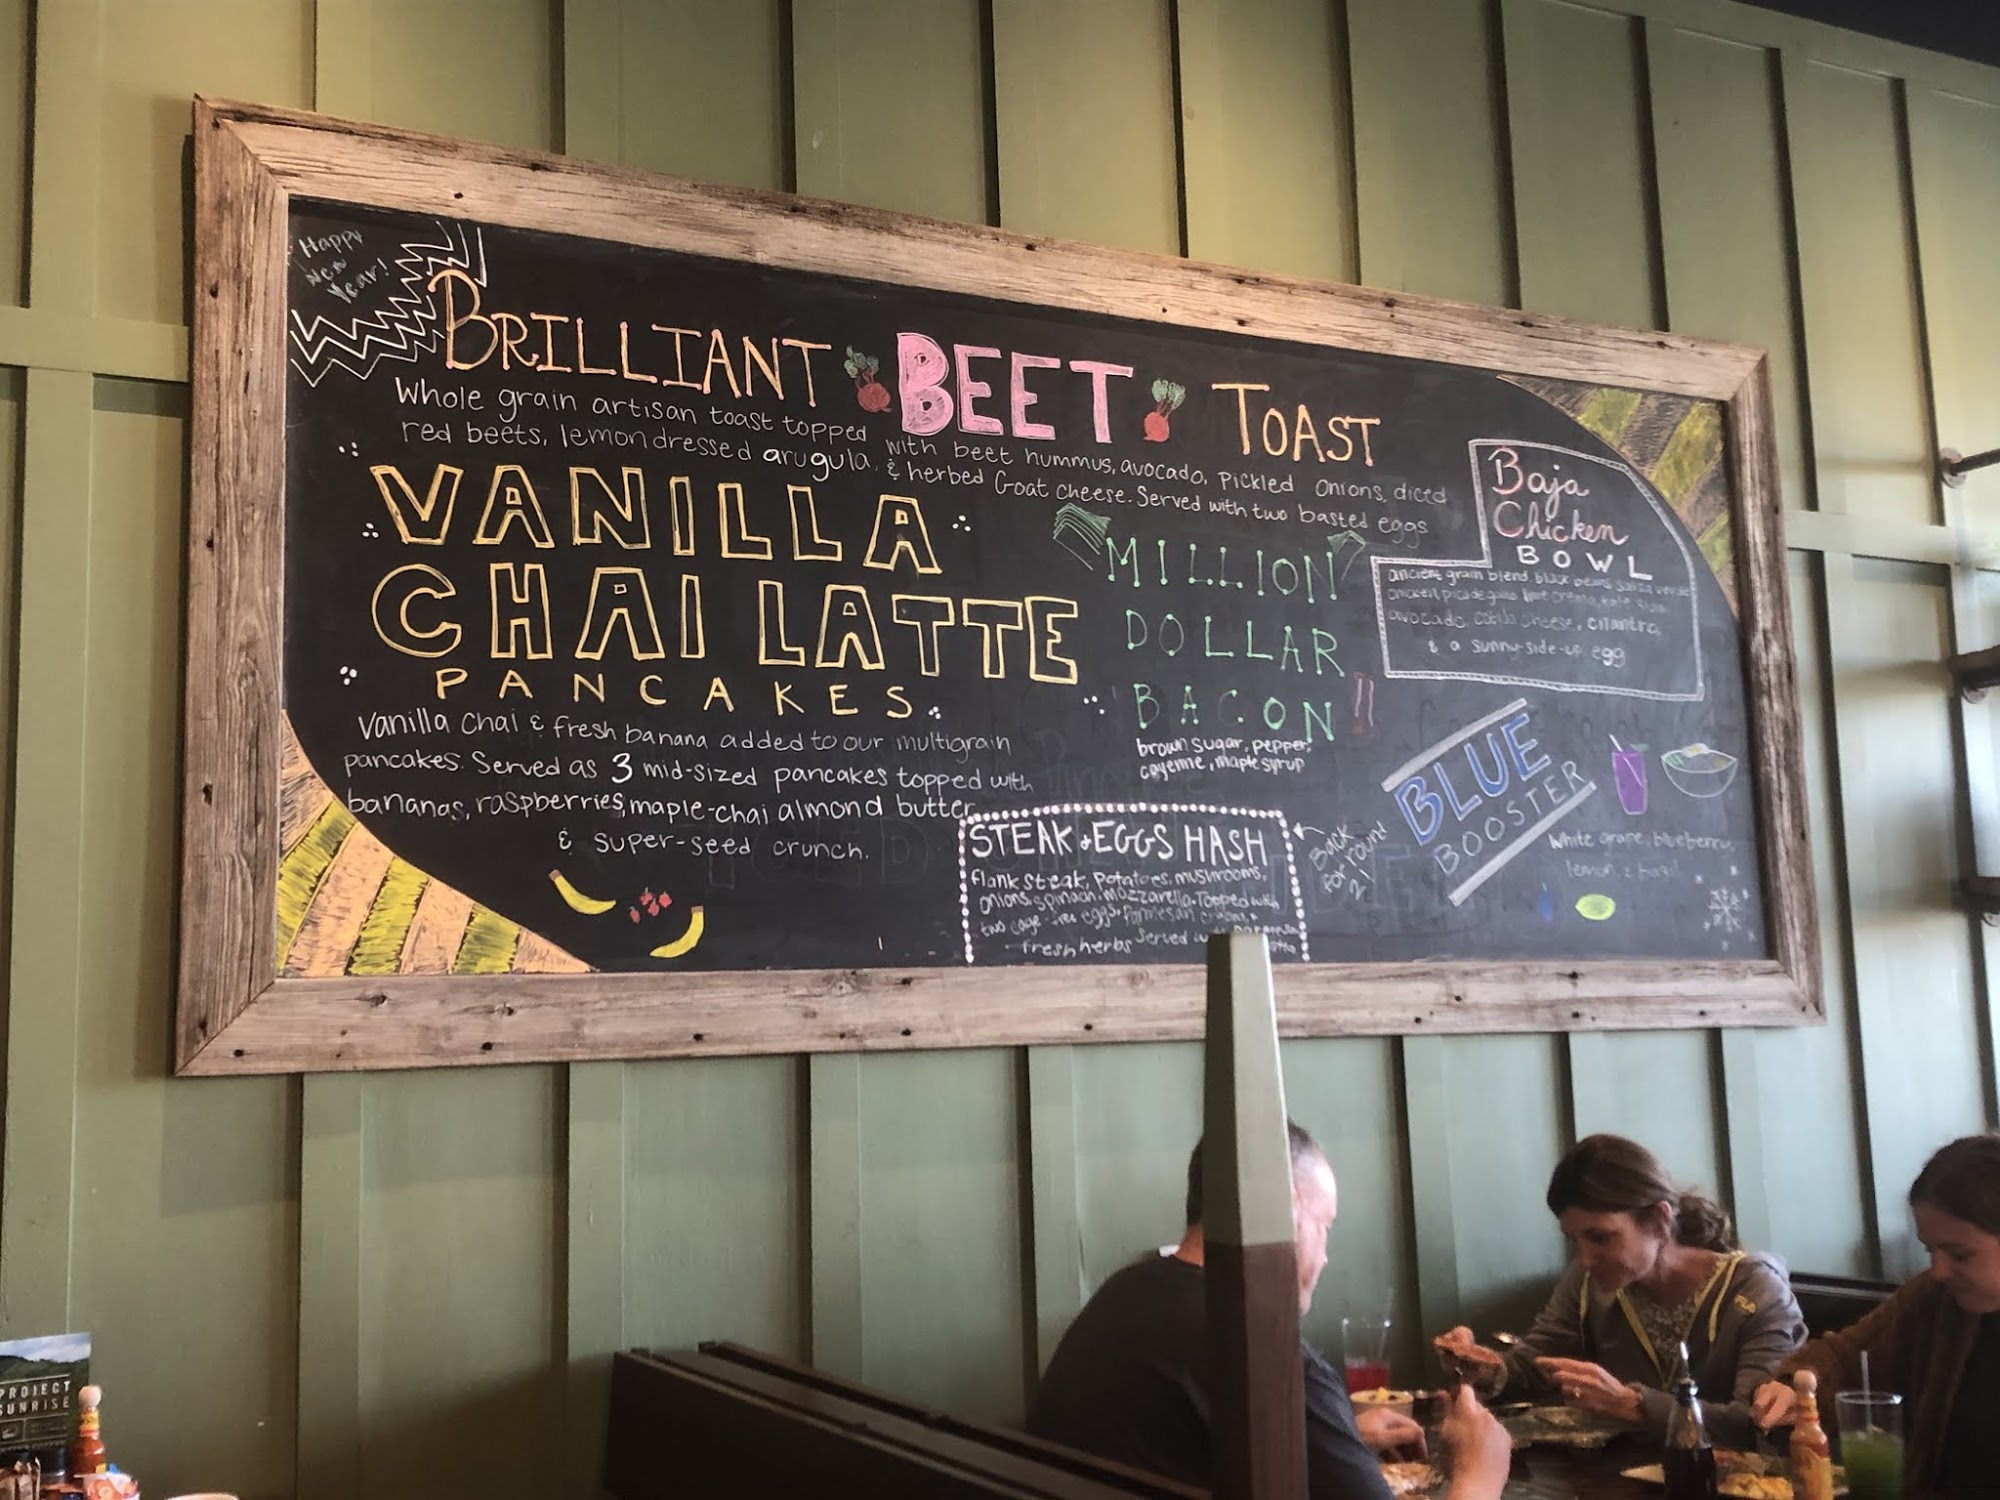 Happy
New
Year!
BRILLIANT BEET TOAST
Whole grain artisan toast topped with beet hummus, avocado, pickled onions, diced
red beets, lemon dressed arugula, & herbed Goat cheese. Served with two basted eggs
VANILLA
CHAI LATTE
PANCAKES
Vanilla Chai & fresh banana added to our multigrain
pancakes. Served as 3 mid-sized pancakes topped with
bananas, raspberries, maple-chai almond butter
& super-seed crunch.
MILLION
DOLLAR
BACON
brown sugar, pepper,
cayenne, maple syrup
Baja
Chicken
BOWL
ancient grain blend, black beans, salsa verde
chicken, pico de gallo, lime crema, kale slaw
avocado, cotija cheese, cilantro,
& a sunny-side-up egg
STEAK & EGGS HASH
flank steak, potatoes, mushrooms,
onions, spinach, mozzarella. Topped with
two cage-free eggs, Parmesan cream, &
fresh herbs Served
Back
for
round
2!
BLUE
BOOSTER
White grape, blueberry,
lemon, & basil
PROJECT
SUNRISE